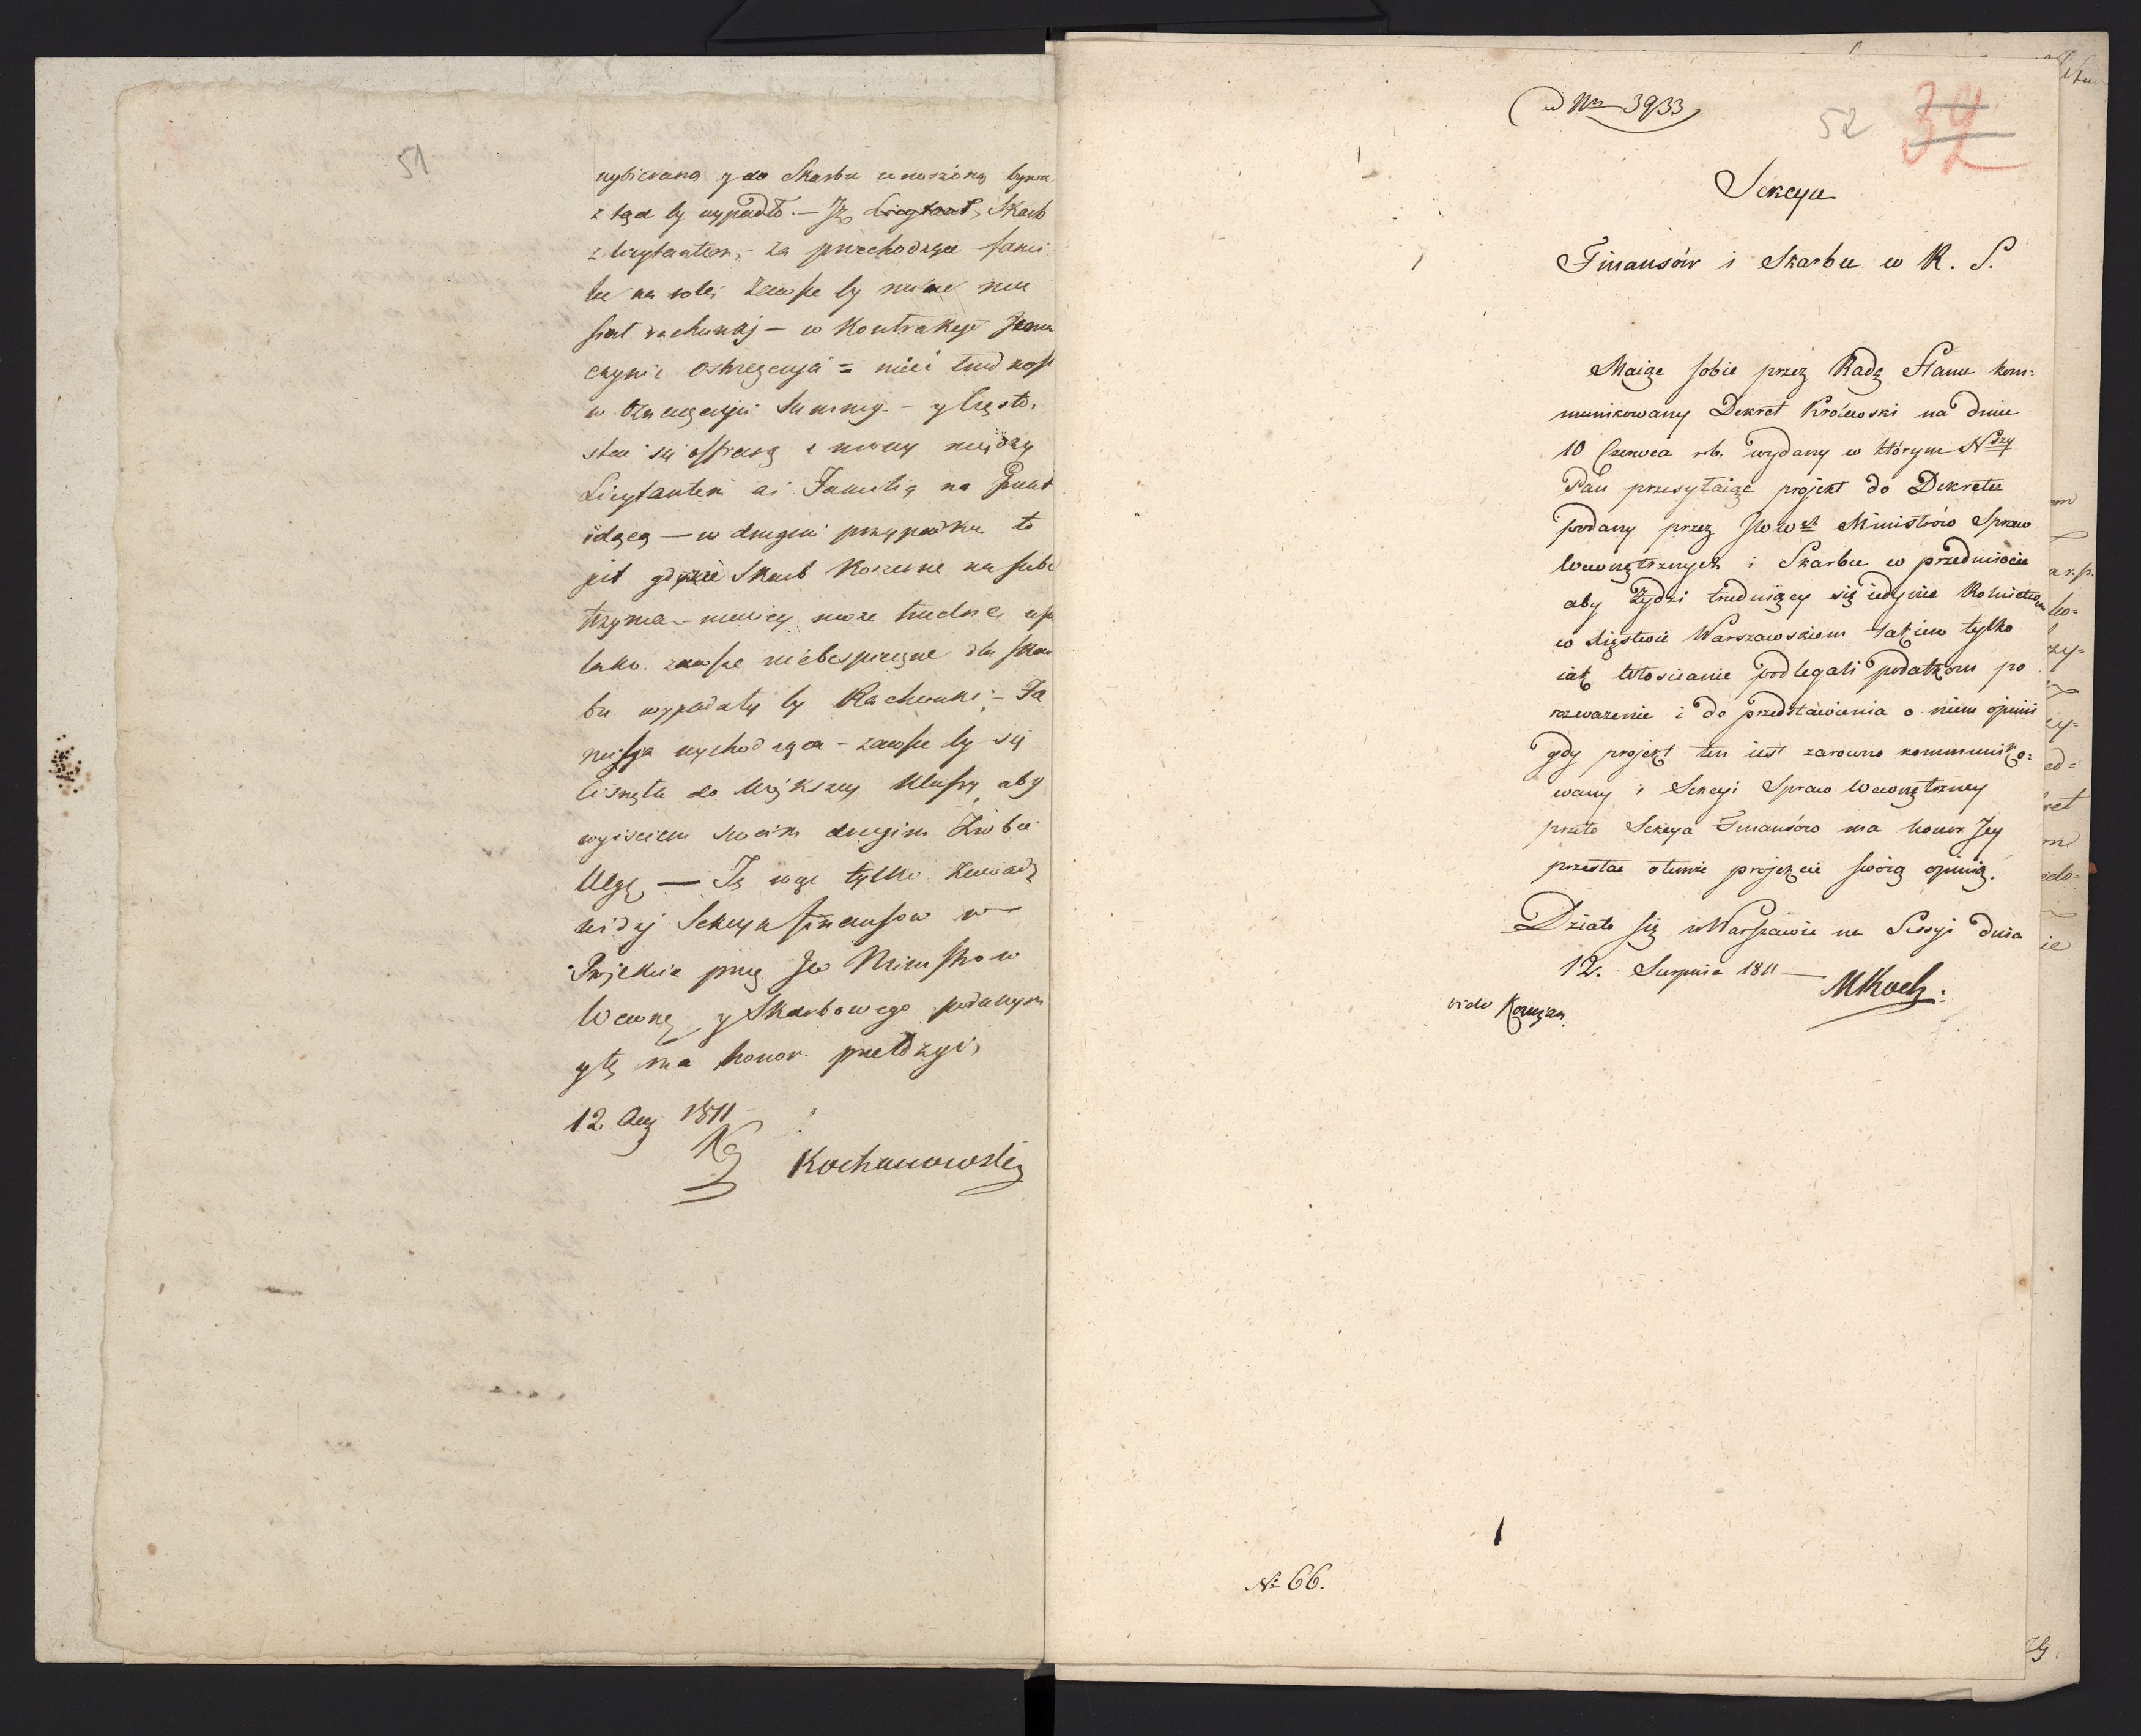 51
wybieraną y do Skarbu wnoszoną bywa
z tąd by wypadło. — Iż Licytant, Skarb
z licytantem, — za przechodzące fami
lie na rolei zawsze by miał mu
siał rachunki — w Kontrakcji
czynić ostrzeżenia = mieć trudność
w Summy — y często
stać się
Licytantem a Familią na Grunt
idącą — w drugim przypadku to
jest gdzie Skarb Koszerne na siebie
trzyma — może trudne
lako zawsze niebespieczne dla Skar
bu wypadały by Rachunki; — Fa
milija wychodząca — zawsze by się
cisnęła do większey Klassy, aby
wyiściem swoim drugim zrobić
Ulgę — Tę więc tylko zawadę
widzi Sekcya Finansow w
Projekcie przez JW Ministrow
Wewnę. y Skarbowego podanym
y tę ma honor
12 Aug 1811
Kochanowski
ad Nrm 3933
52 32
Sekcya
Finansów i Skarbu w R. S.
Maiąc sobie przez Radę Stanu kom=
munikowany Dekret Królewski na dniu
10 Czerwca rb. wydany w którym Nayszy
Pan przesyłaiąc projekt do Dekretu
podany przez JWW Ministrów Spraw
Wewnętrznych i Skarbu w przedmiocie
aby Żydzi trudniący się iedynie Rolnictwem
w Xięstwie Warszawskiem takiem tylko
iak Włościanie podlegali podatkom po
rozważenie i do przedstawienia o niem opinii
gdy projekt ten iest zarówno kommuniko=
wany i Sekcyi Spraw Wewnętrzney
przeto Sekcya Finansów ma honor Jey
przesłać o temże projekcie swoią opinią.
Działo się w Warszawie na Sessyi dnia
12. Sierpnia 1811 —
MKoch:
vidi
№ 66.